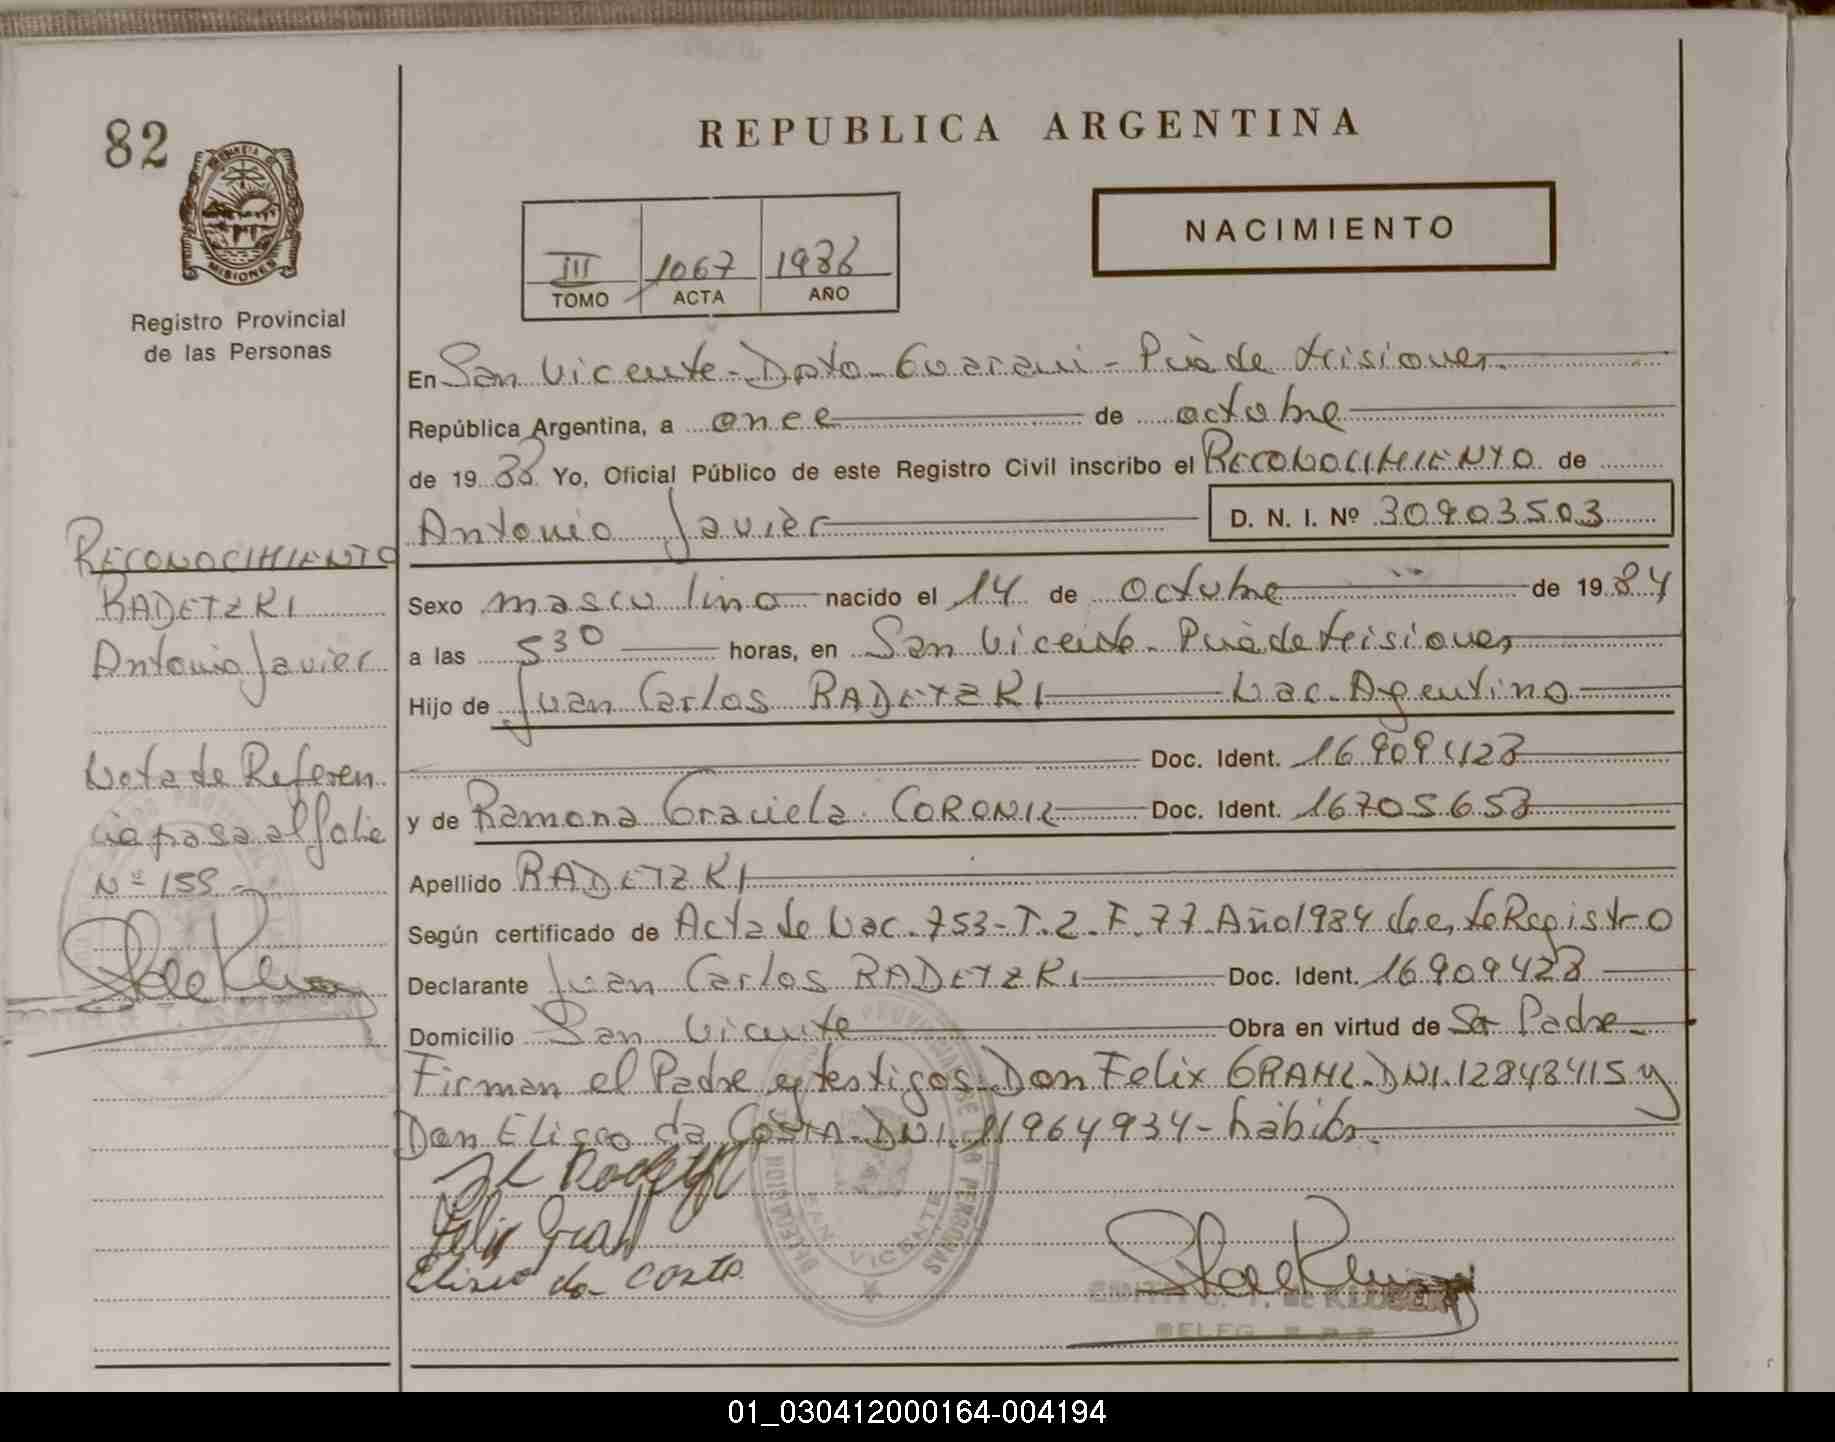 82
PROVINCIA DE
MISIONES
Registro Provincial
de las Personas
REPUBLICA ARGENTINA
III 1067 1988
TOMO ACTA AÑO
NACIMIENTO
En San Vicente - Dpto - Guarani - Pcia de Misiones.
República Argentina, a once de octubre
de 19 88 Yo, Oficial Público de este Registro Civil inscribo el RECONOCIMIENTO de
Antonio Javier D. N. I. Nº 30.903.503
Sexo masculino nacido el 14 de Octubre de 19 84
a las 5 30 horas, en San Vicente - Pcia de Misiones
Hijo de Juan Carlos RADETZKI Nac. Argentino
Doc. Ident. 16.909.428
y de Ramona Graciela CORONEL Doc. Ident. 16.705.653
Apellido RADETZKI
Según certificado de Acta de Nac. 753 - T. 2. F. 77. Año 1984 de este Registro
Declarante Juan Carlos RADETZKI Doc. Ident. 16.909.428
Domicilio San Vicente Obra en virtud de Ser Padre
Firman el Padre y testigos Don Felix GRAHL. DNI. 12848415 y
Don Eliseo da COSTA - DNI. 11964934 - hábiles.
Eliseo da Costa
SAN VICENTE
RECONOCIMIENTO
RADETZKI
Antonio Javier
Nota de Referen
cia pasa al folio
Nº 159
01_030412000164-004194